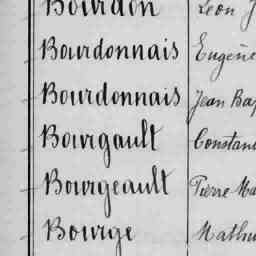 Bourdon Léon J
Bourdonnais Eugène
Bourdonnais Jean Bap
Bourgault Constan
Bourgeault Pierre Ma
Bourge Mathu